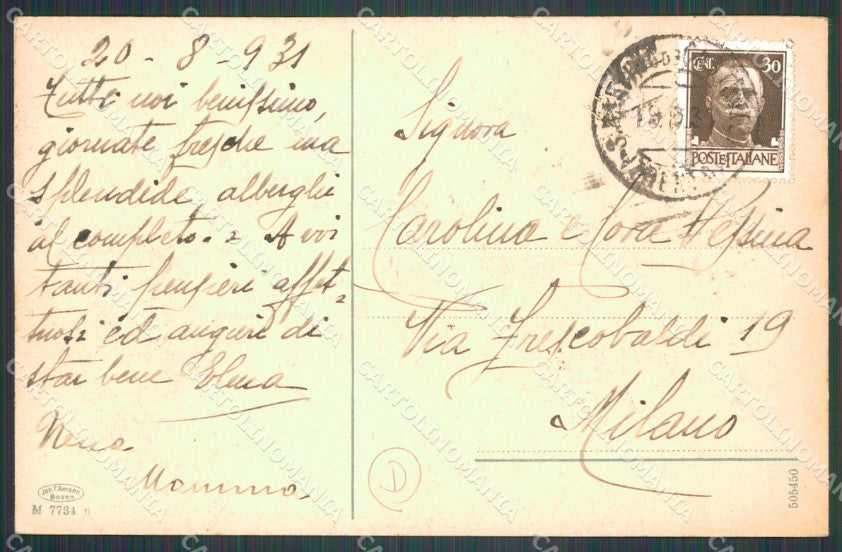 20 - 8 - 931
Tutti noi benissimo,
giornate fresche ma
splendide, alberghi
al completo. = A voi
tanti pensieri affet=
tuosi ed auguri di
star bene Elena
Nena
Mamma
Joh. F. Amonn
Bozen
M 7734 n
CENT. 30
POSTE ITALIANE
Signora
Carolina e Cora Messina
Via Frescobaldi 19
Milano
D
505450
CARTOLINOMANIA